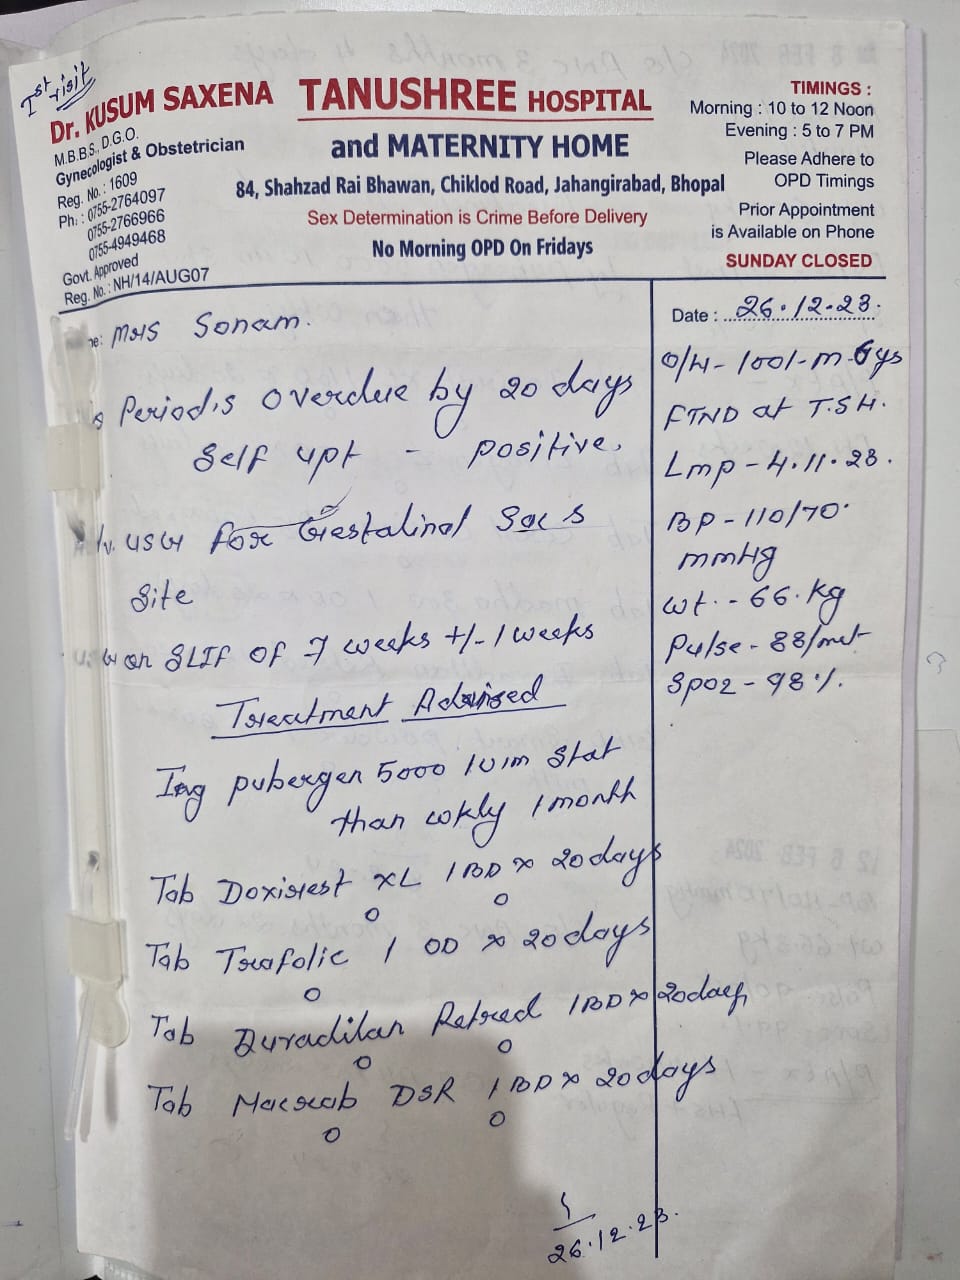 Ist visit
Dr. KUSUM SAXENA
M.B.B.S., D.G.O.
Gynecologist & Obstetrician
Reg. No. : 1609
Ph. : 0755-2764097
0755-2766966
0755-4949468
Govt. Approved
Reg. No.: NH/14/AUG07
TANUSHREE HOSPITAL
and MATERNITY HOME
84, Shahzad Rai Bhawan, Chiklod Road, Jahangirabad, Bhopal
Sex Determination is Crime Before Delivery
No Morning OPD On Fridays
TIMINGS :
Morning : 10 to 12 Noon
Evening : 5 to 7 PM
Please Adhere to
OPD Timings
Prior Appointment
is Available on Phone
SUNDAY CLOSED
Mrs Sonam.
Period,s overdue by 20 days
Self upt - positive.
USG for Gestalinal Sac s
Site
on SLIF OF 7 weeks +/- 1 weeks
Treatment Advised
Inj pubergen 5000 IU im Stat
than wkly 1 month
Tab Doxirest XL 1 BD x 20 days
Tab Trafolic 1 OD x 20 days
Tab Duradilan Retred 1 BD x 20 days
Tab Macrab DSR 1 BD x 20 days
26.12.23.
Date : 26.12.23.
O/H - 1001 - M - 6 ys
FTND at T.S.H.
Lmp - 4.11.23.
BP - 110/70.
mmHg
wt. - 66. Kg
Pulse - 88/met
Spo2 - 98 %.